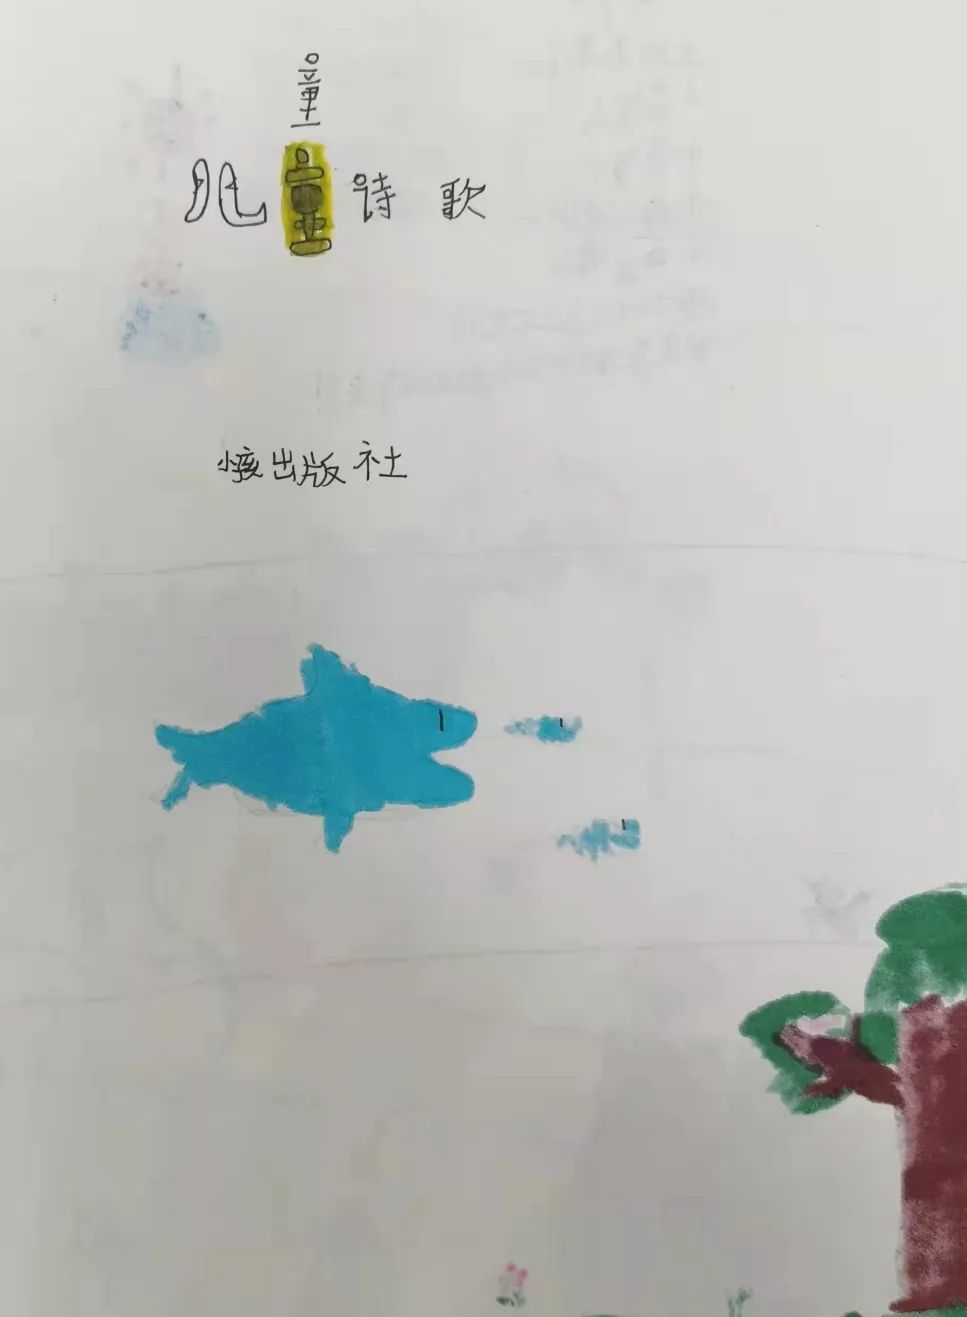 童
儿童诗歌
小孩出版社